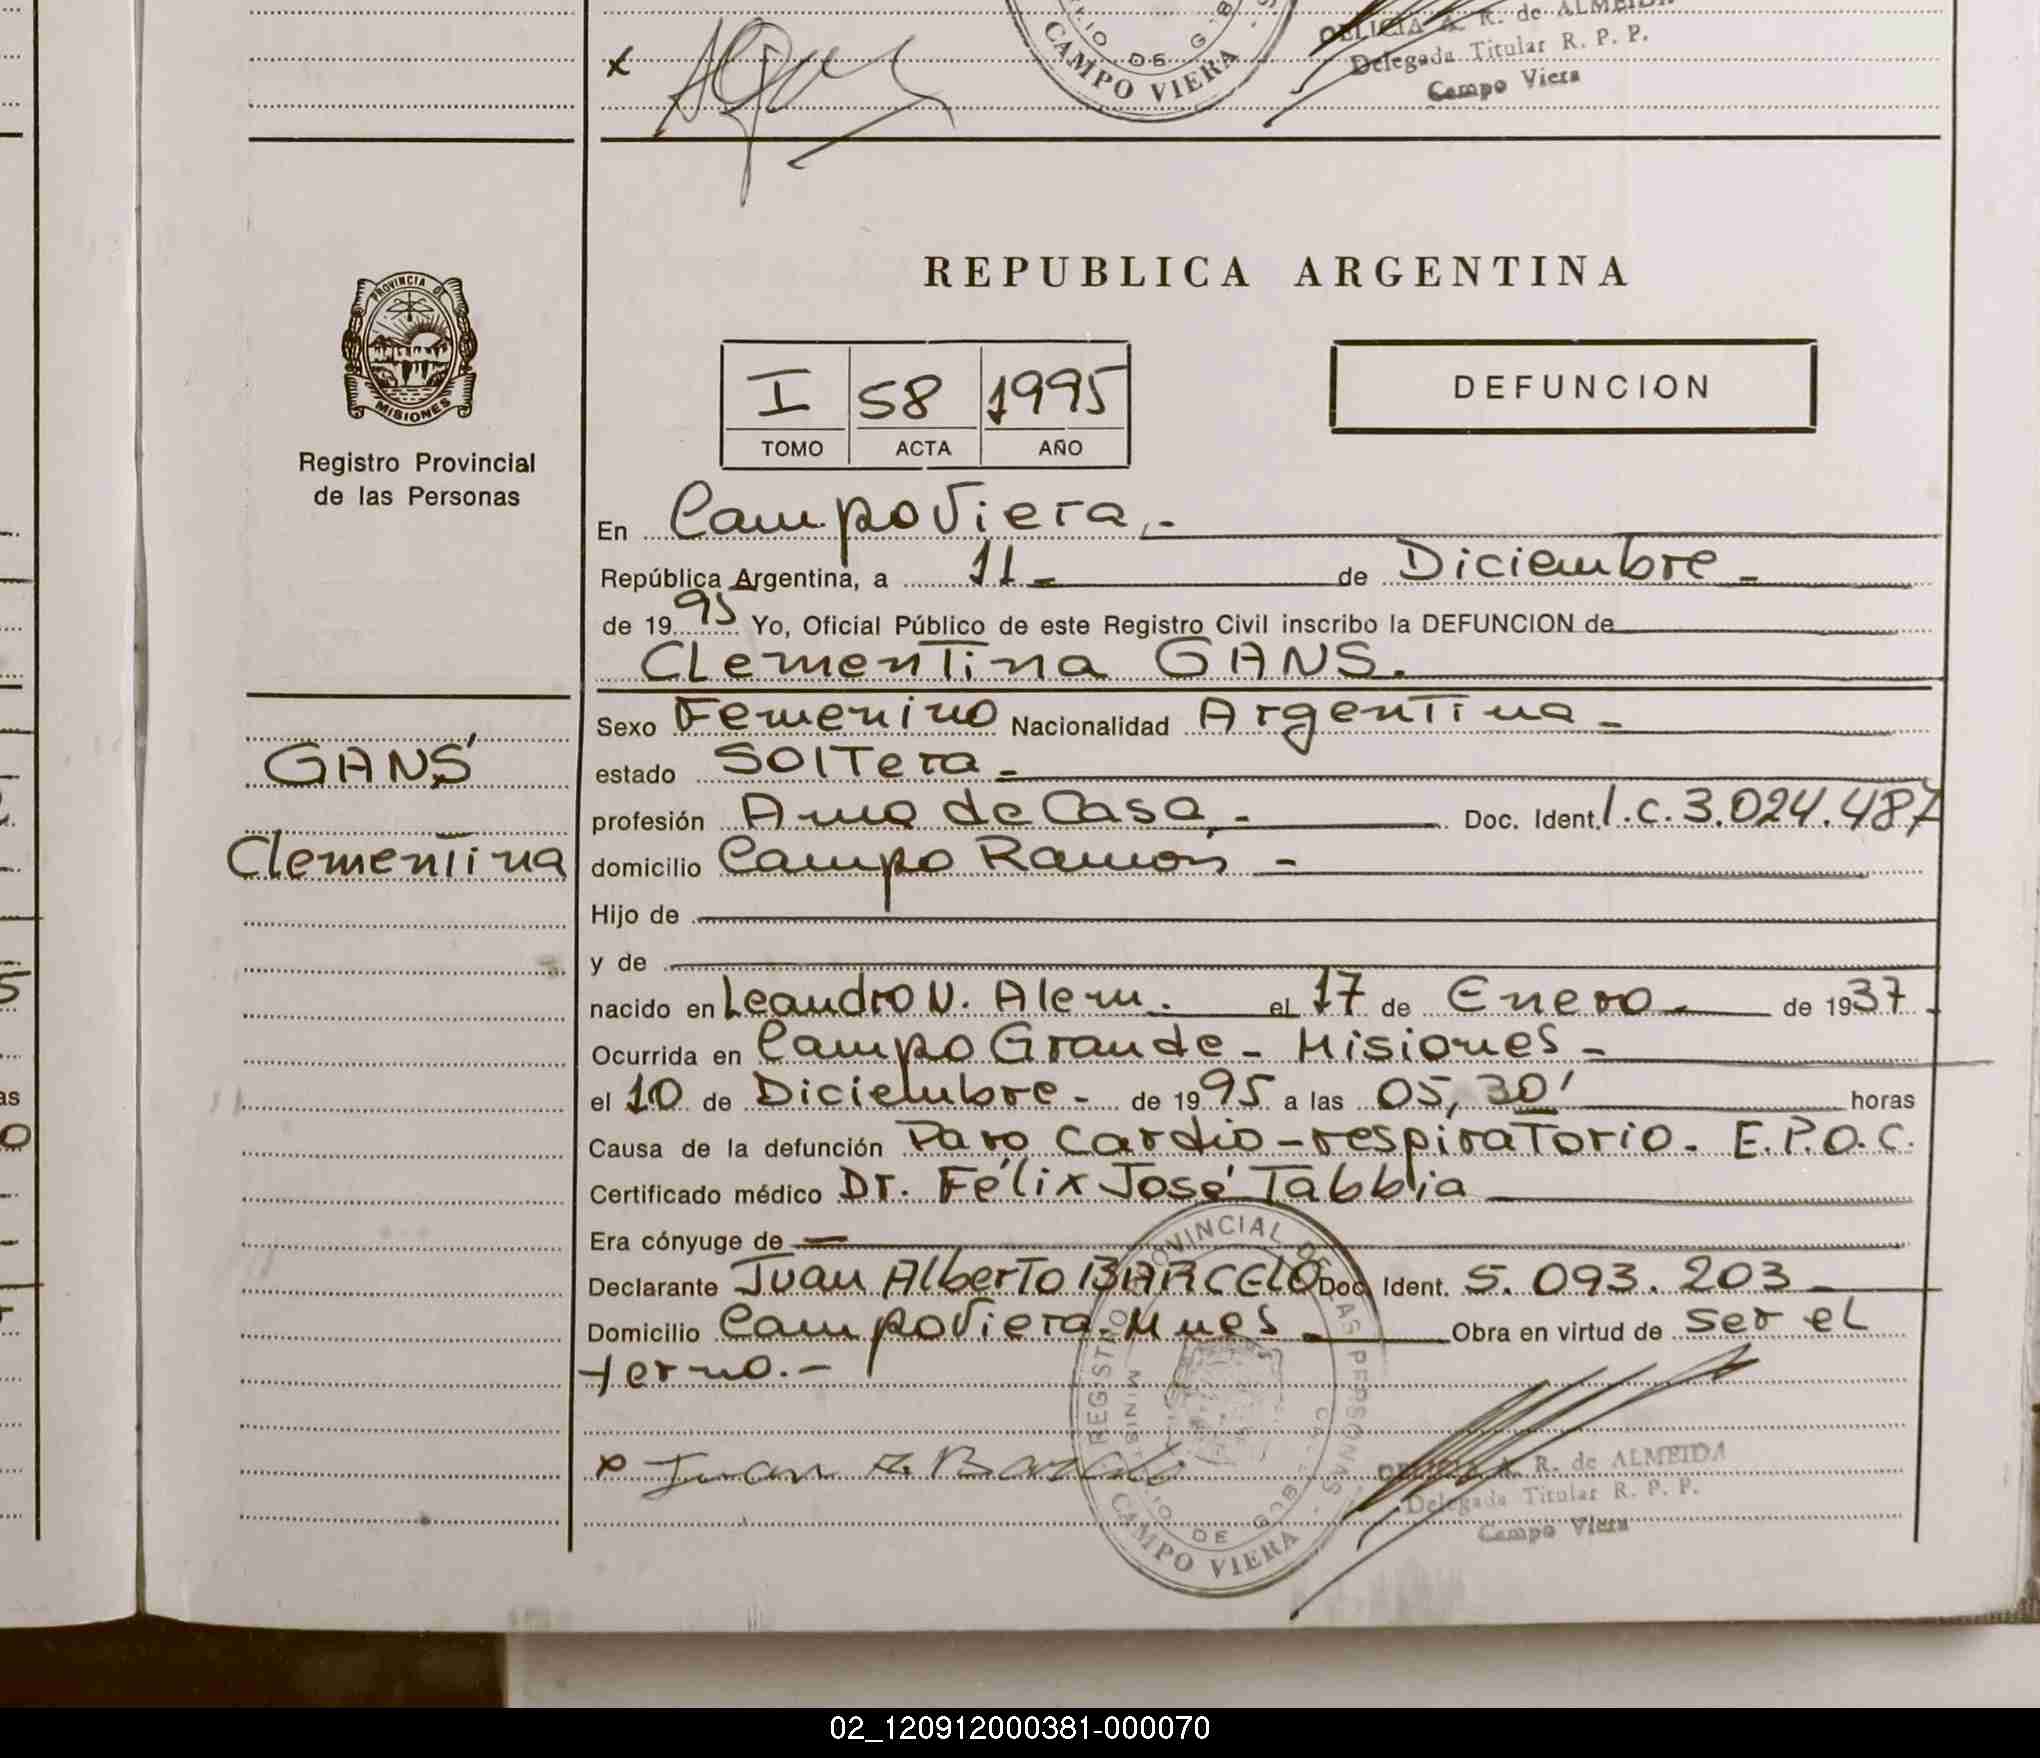 OFLICIA A. R. de ALMEIDA
Delegada Titular R. P. P.
Campo Viera
x
IO DE G B
CAMPO VIERA
PROVINCIA DE
MISIONES
Registro Provincial
de las Personas
REPUBLICA ARGENTINA
I 58 1995
TOMO ACTA AÑO
DEFUNCION
En Campo Viera,-
República Argentina, a 11- de Diciembre-
de 1995 Yo, Oficial Público de este Registro Civil inscribo la DEFUNCION de
Clementina GANS.
Sexo Femenino Nacionalidad Argentina-
GANS
estado Soltera-
profesión Ama de Casa,- Doc. Ident. l.c. 3.024.487
Clementina
domicilio Campo Ramón -
Hijo de
y de
nacido en Leandro N. Alem. el 17 de Enero- de 1937
Ocurrida en Campo Grande- Misiones-
el 10 de Diciembre- de 1995 a las 05,30' horas
Causa de la defunción Paro cardio-respiratorio- E.P.O.C.
Certificado médico Dr. Félix José Tabbia
Era cónyuge de —
Declarante Juan Alberto BARCELO Doc. Ident. 5.093.203-
Domicilio Campo Viera, Mnes. Obra en virtud de ser el
yerno.-
x Juan A. Barcelo
REGISTRO PROVINCIAL DE LAS PERSONAS
MINISTERIO DE GOB
CAMPO VIERA
A. R. de ALMEIDA
Delegada Titular R. P. P.
Campo Viera
02_120912000381-000070